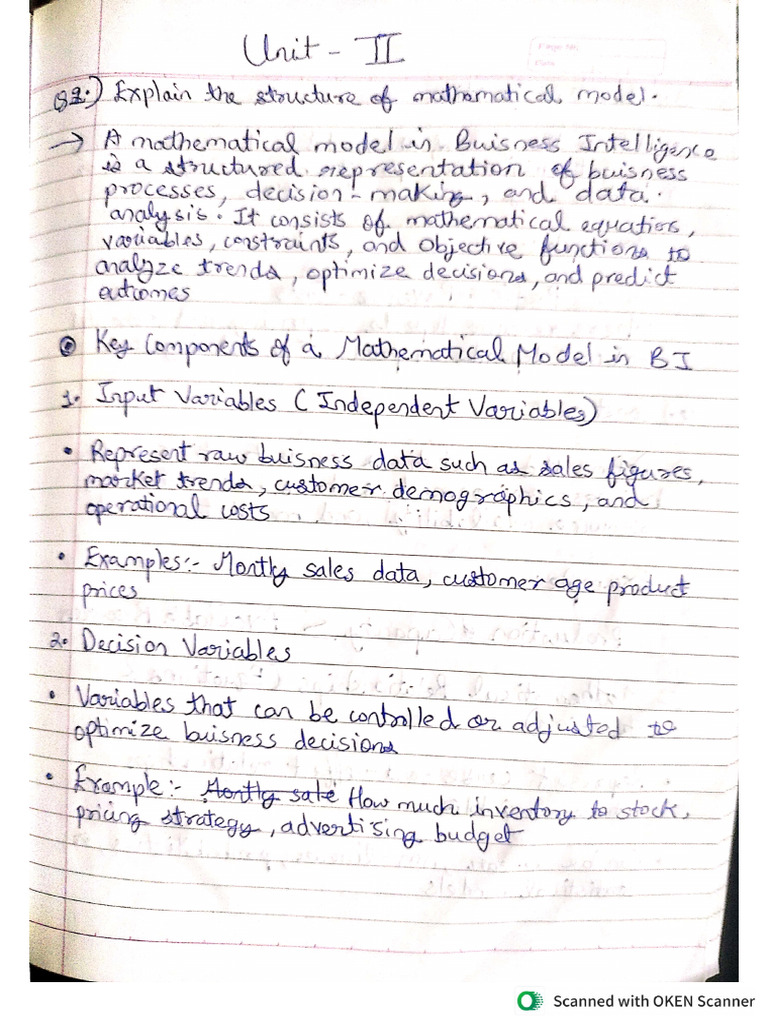 Unit - II
Q1.) Explain the structure of mathematical model.
→ A mathematical model in Buisness Intelligence
is a structured representation of buisness
processes, decision-making, and data.
analysis. It consists of mathematical equations,
variables, constraints, and objective functions to
analyze trends, optimize decisions, and predict
outcomes
Key Components of a Mathematical Model in BI
1. Input Variables (Independent Variables)
• Represent raw buisness data such as sales figures,
market trends, customer demographics, and
operational costs
• Examples:- Montly sales data, customer age product
prices
2. Decision Variables
• Variables that can be controlled or adjusted to
optimize buisness decisions
• Example:- Montly sale How much inventory to stock,
pricing strategy, advertising budget
Scanned with OKEN Scanner